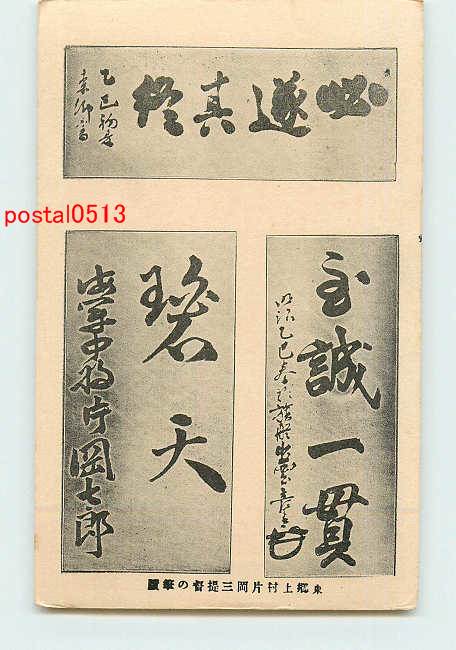 遂真
乙巳初春
東郷書
postal0513
至誠一貫
明治乙巳春於旗艦出雲
碧天
海軍中将片岡七郎
東郷上村片岡三提督の筆蹟